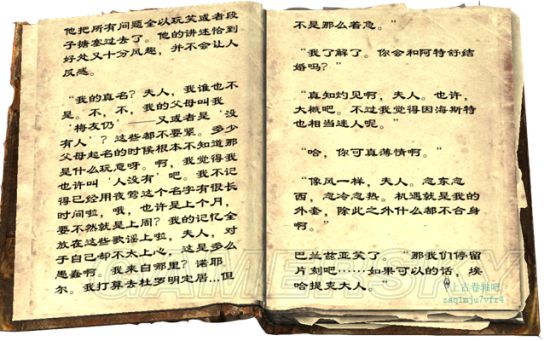 他把所有问题全以玩笑或者段
子搪塞过去了。他的讲述恰到
好处又十分风趣，并不会让人
反感。
“我的真名？夫人，我谁也不
是。不，不，我的父母叫我
‘将友仍’——又或者是‘没
有人’？这些都不要紧。多少
父母起名的时候根本不知道那
是什么玩意呀。啊，我觉得我
也许叫‘人没有’吧。我不记
得已经用夜莺这个名字有很长
时间啦，哦，也许是上个月，
要不然就是上周？我的记忆全
放在这些歌谣上啦，夫人，对
于自己却不太上心，这是多么
愚蠢啊。我来自哪里？诺耶
尔。我打算去杜罗明定居…但
不是那么着急。”
“我了解了。你会和阿特舒结
婚吗？”
“真知灼见啊，夫人。也许，
大概吧。不过我觉得因海斯特
也相当迷人呢。”
“哈，你可真薄情啊。”
“像风一样，夫人。忽东忽
西，忽冷忽热。机遇就是我的
外套，除此之外什么都不合身
啊。”
巴兰兹亚笑了。“那我们停留
片刻吧……如果可以的话，埃
哈提克大人。”
GAMERSKY
@上古卷轴吧
zaq1mju7vfr4